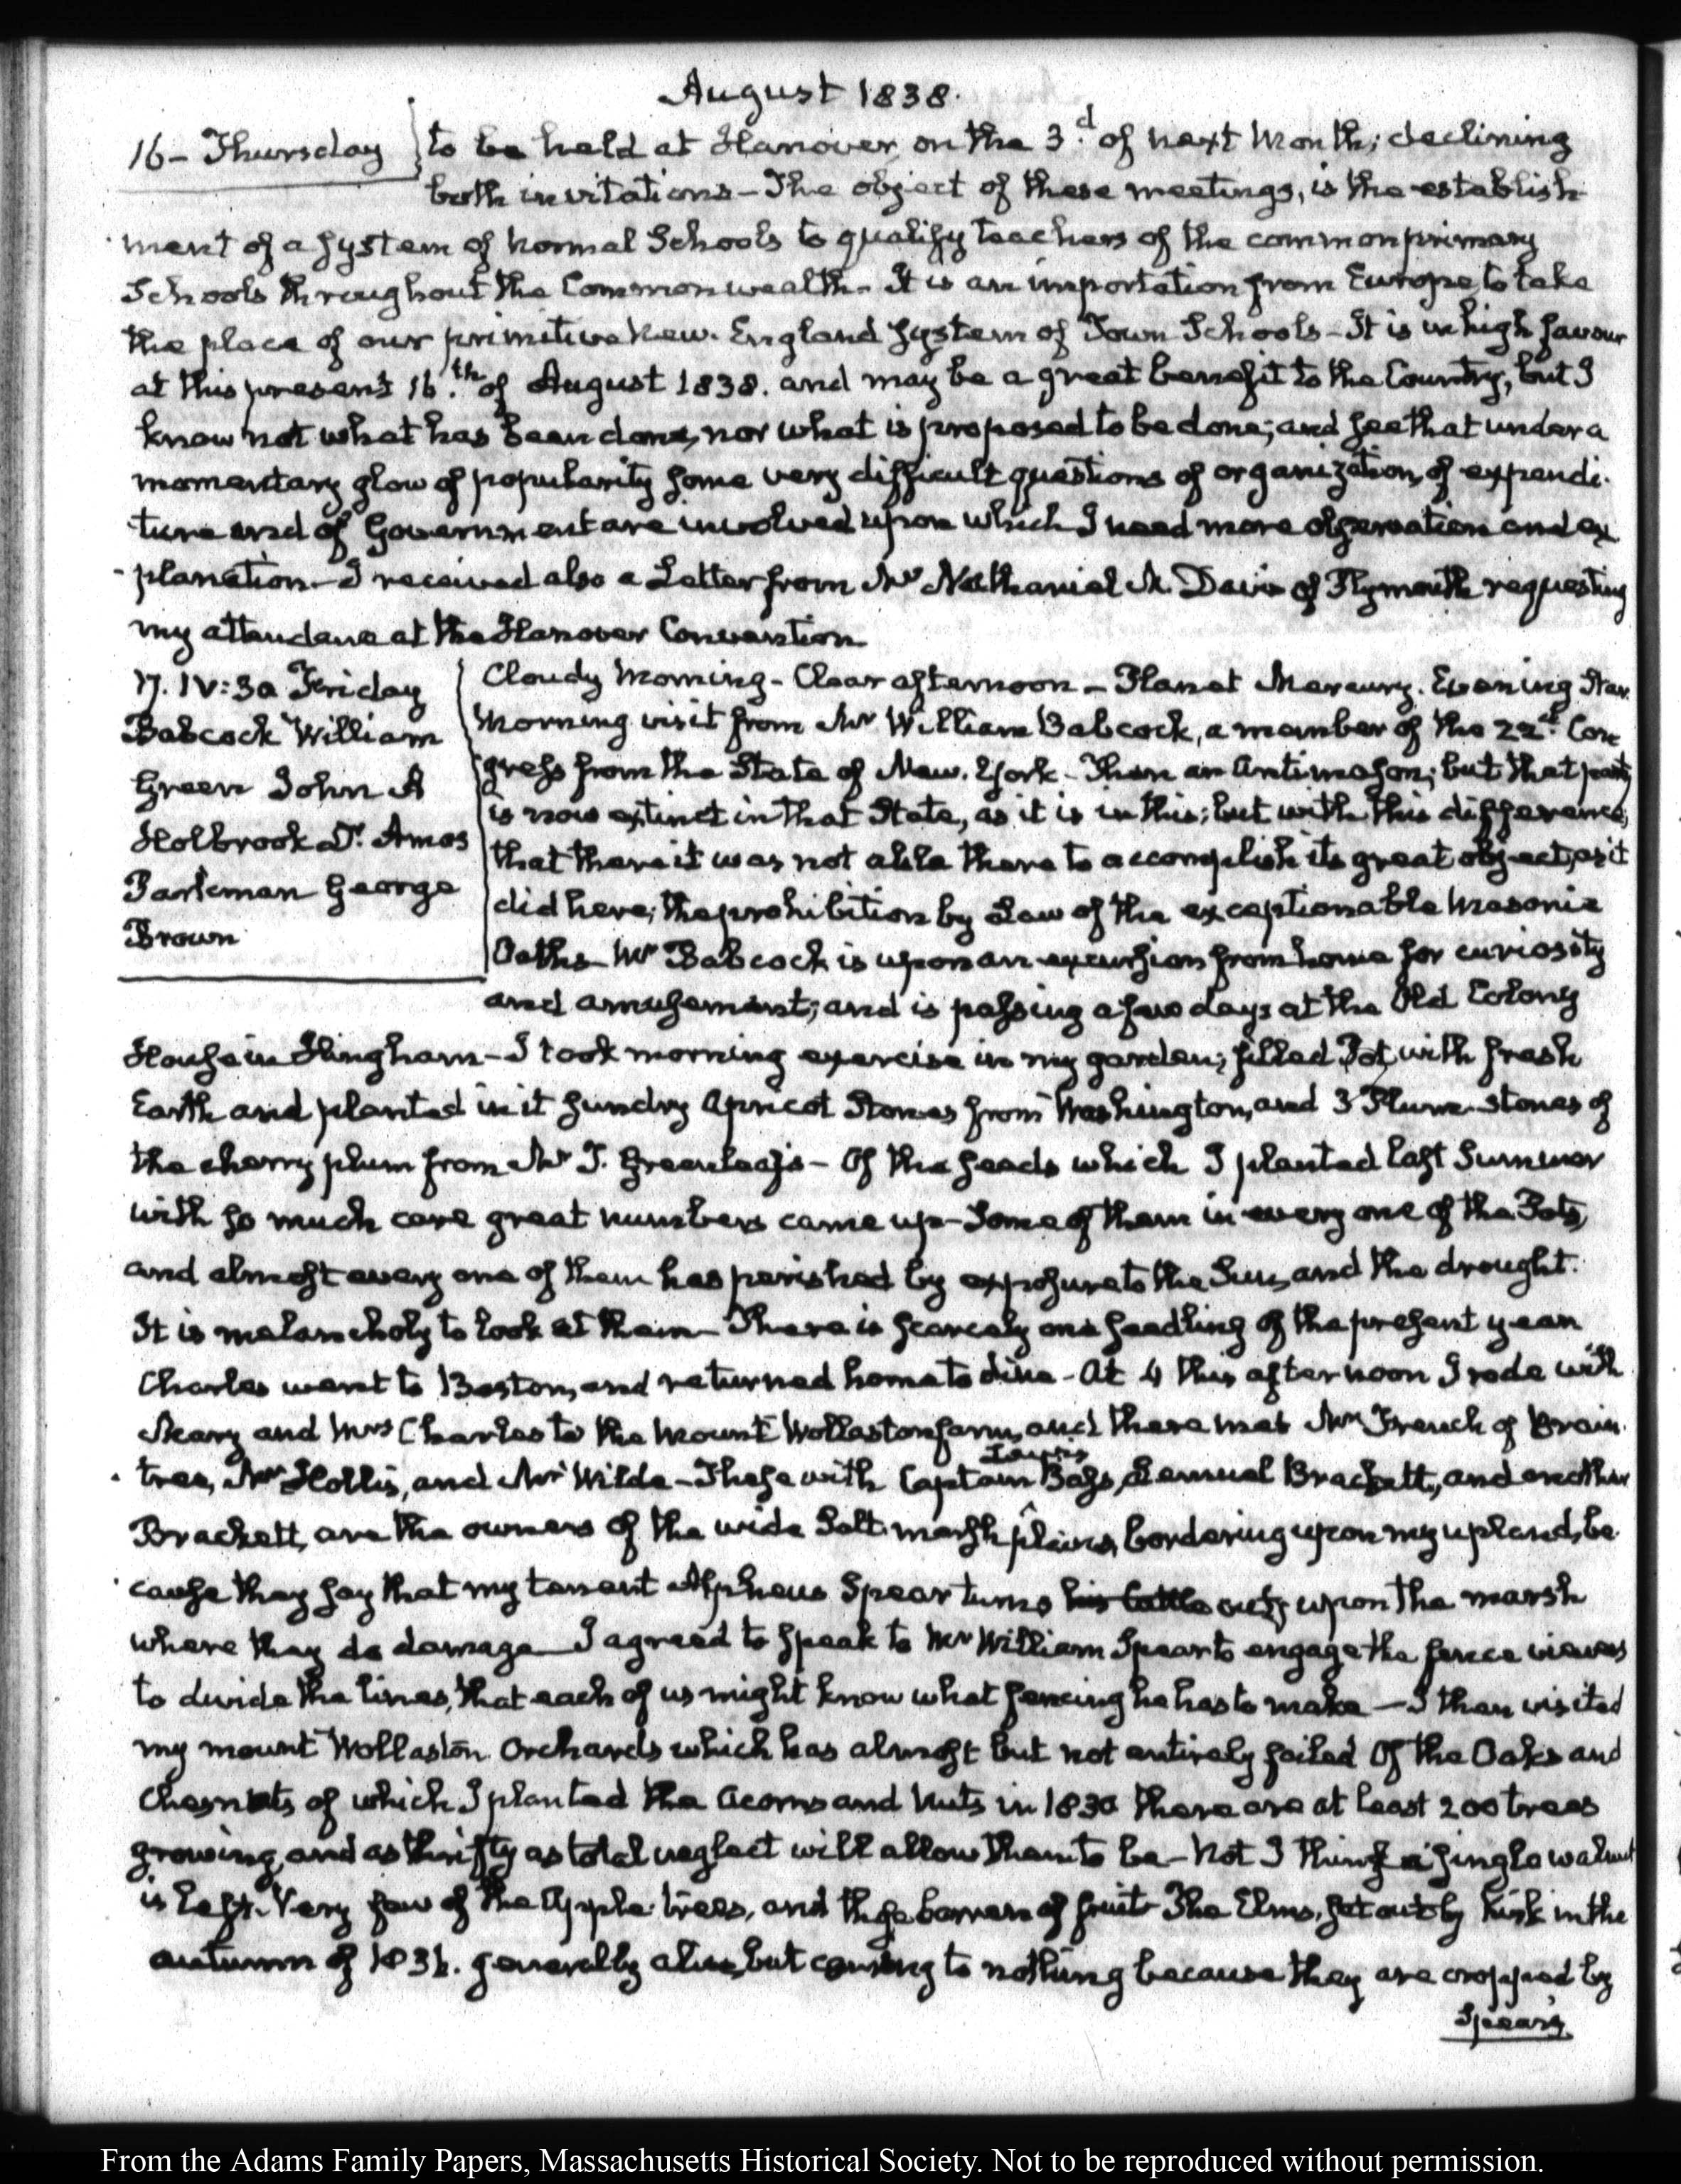 August 1838.
16 – Thursday
to be held at Hanover, on the 3.d of next Month; declining
both invitations – The object of these meetings, is the establish
ment of a system of Normal Schools to qualify teachers of the common primary
Schools throughout the Commonwealth – It is an importation from Europe, to take
the place of our primitive New-England system of Town Schools – It is in high favour
at this present 16.th of August 1838. and may be a great benefit to the Country, but I
know not what has been done, nor what is proposed to be done; and see that under a
momentary glow of popularity some very difficult questions of organization, of expendi-
ture and of Government are involved upon which I need more observation and ex
planation – I received also a Letter from Mr Nathaniel M. Davis of Plymouth requesting
my attendance at the Hanover Convention
17. IV:30 Friday
Babcock William
Green John A
Holbrook Dr. Amos
Parkman George
Brown
Cloudy Morning – Clear afternoon – Planet Mercury. Evening Star.
Morning visit from Mr William Babcock, a member of the 22d. Con
gress from the State of New-York – Then an Antimason; but that party
is now extinct in that State, as it is in this; but with this difference,
that there it was not able there to accomplish its great object, as it
did here; the prohibition by Law of the exceptionable Masonic
Oaths – Mr Babcock is upon an excursion from home for curiosity
and amusement; and is passing a few days at the Old Colony
House in Hingham – I took morning exercise in my garden; filled Pot, with fresh
Earth and planted in it sundry Apricot Stones from Washington, and 3 Plum-stones of
the cherry plum from Mr T. Greenleaf's – Of the seeds which I planted last Summer
with so much care great numbers came up – Some of them in every one of the Pots,
and almost every one of them has perished by exposure to the Sun, and the drought.
It is melancholy to look at them – There is scarcely one seedling of the present year
Charles went to Boston, and returned home to dine – At 4 this afternoon I rode with
Mary and Mrs Charles to the Mount Wollaston farm, and there met Mr French of Brain-
tree, Mr Hollis, and Mr Wilde – These with Captain Bass, Lemuel Brackett, and another
Brackett, are the owners of the wide Salt marsh plains, bordering upon my upland, be-
cause they say that my tenant Alpheus Spear turns his Cattle out, upon the marsh
where they do damage – I agreed to speak to Mr William Spear to engage the fence viewers
to divide the lines, that each of us might know what fencing he has to make – I then visited
my mount Wollaston Orchards which has almost but not entirely failed Of the Oaks and
Chesnuts of which I planted the Acorns and Nuts in 1830 there are at least 200 trees
growing, and as thrifty as total neglect will allow them to be – Not I think a single walnut
is left. Very few of the Apple-trees, and those barren of fruit – The Elms, set out by Kirk in the
autumn of 183. generally alive, but coming to nothing because they are cropped by
Spear's